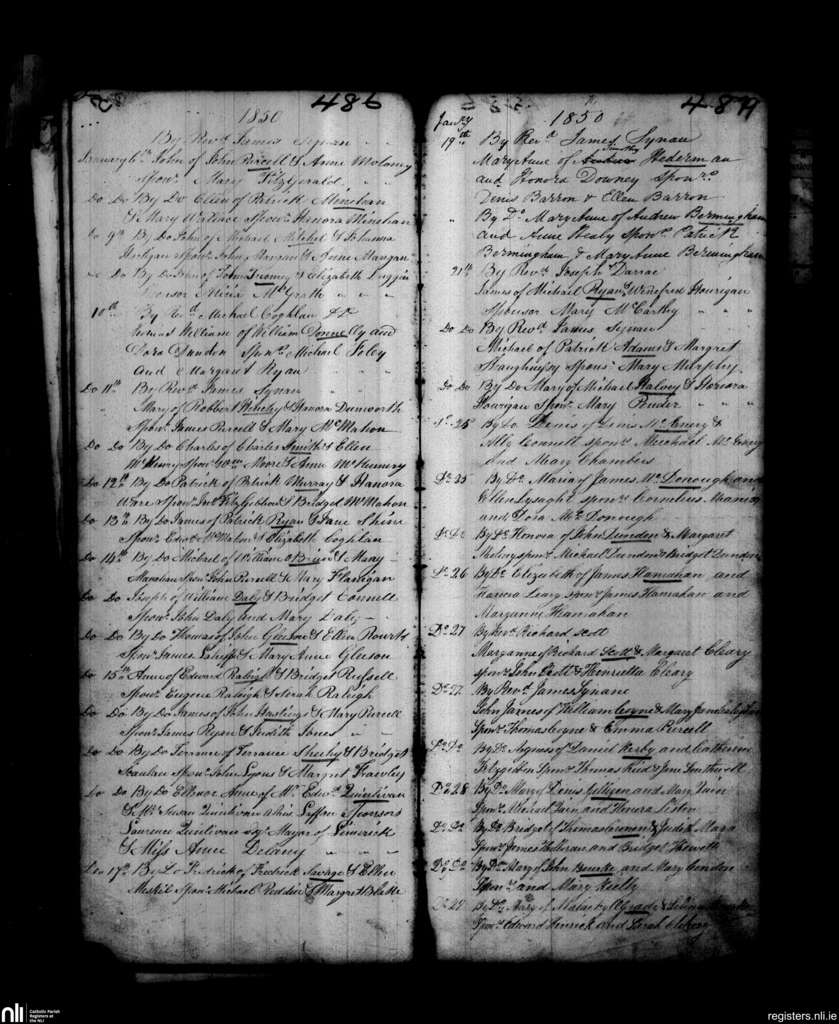 486
1850
By Revd James Synan
January 6th John of John Purcell & Anne Molony
Sponr Mary FitzGerald
Do Do By Do Ellen of Patrick Minihan
& Mary Wallace Sponr Honora Minihan
Do 9th By Do John of Michael Mitchel & Johanna
Sponr John Mangan & Anne Mangan
Do By Do of John & Elizabeth
Sponsor McGrath
10th By Revd Michael Coghlan
William of William Donnelly and
Dora Dundon Sponrs Michael Foley
and Margaret Ryan
Do 11th By Revd James Synan
Mary of Robbert & Hanora Dunworth
Sponr James Purcell & Mary McMahon
Do Do By Do Charles of Charles Smith & Ellen
McNemry Sponr Moore & Anne McNemry
Do 12th By Do Patrick of Patrick Murray & Hanora
Ware Sponr & Bridget McMahon
Do 13th By Do James of Patrick Ryan & Jane Shine
Sponr Edwd McMahon & Elizabeth Coghlan
Do 14th By Do Michael of William OBrien & Mary
Sponr John Purcell & Mary Flanigan
Do Do Joseph of William Daly & Bridget Connell
Sponr John Daly and Mary Daly
Do Do By Do Thomas of John Gleeson & Ellen Rourke
Sponr James & Mary Anne Gleeson
Do 15th Anne of Edward Raleigh & Bridget Russell
Sponr Eugene Raleigh & Sarah Raleigh
Do Do By Do James of John Hastings & Mary Purcell
Sponr James Ryan & Judith Jones
Do Do By Do Terrance of Terrance Sheehy & Bridget
Scanlan Sponr John Lyons & Margret Frawley
Do Do By Do Ellenor Anne of Mr Edwd Quinlivan
& Mrs Susan Quinlivan alias Giffon Sponsors
Laurence Quinlivan esqr Mayor of Limerick
& Miss Anne Delany
Do 17th By Do Fredrick of Fredrick Savage & Ellen
Sponr Michael Reddin & Margret Blake
487
1850
Jany
19th By Revd James Synan
Mary Anne of Timothy Hederman
and Honora Downey Sponrs
Denis Barron & Ellen Barron
" By Do Mary Anne of Andrew Bermingham
and Anne Healy Sponrs Patrick
Bermingham & Mary Anne Bermingham
21st By Revd Joseph Darrac
James of Michael Ryan & Winefred Hourigan
Sponsor Mary McCarthy
Do Do By Revd James Synan
Michael of Patrick Adams & Margret
Shaughnessy Sponsr Mary Murphy
Do Do By Do Mary of Michael Halvey & Honora
Hourigan Sponr Mary Pender
Do 25 By Do Denis of Denis McEnery &
Ally Connell Sponrs Michael McEnery
and Mary Chambers
Do 25 By Do Maria of James McDonough and
Ellen Lysaght Sponrs Cornelius
and Dora McDonough
Do Do By Do Honora of John Dundon & Margaret
Sponrs Michael Dundon & Bridget Dundon
Do 26 By Do Elizabeth of James Hanrahan and
Honora Leary Sponrs James Hanrahan and
Maryanne Hanrahan
Do 27 By Revd Richard Scott
Maryanne of Richard Scott & Margaret Cleary
Sponrs John Scott & Henrietta Cleary
Do 27 By Revd James Synane
John James of William Coyne & Mary Jane
Sponr Thomas Coyne & Emma Purcell
Do Do By Do Agness of Daniel Kerby and Catherine
Fitzgibbon Sponrs Thomas Reid & Jane Southwell
Do 28 By Do Mary of Denis Gilligan and Mary Quin
Sponrs Michael Quin and Honora Liston
Do Do By Do Bridget of Thomas & Judith Mara
Sponrs James Holloran and Bridget Hewett
Do Do By Do Mary of John Bourke and Mary Condon
Sponr and Mary Kielly
Do 29 By Do Mary of OGrady &
Sponr Edward and Sarah
NLI
Catholic Parish
Registers at
the NLI
registers.nli.ie